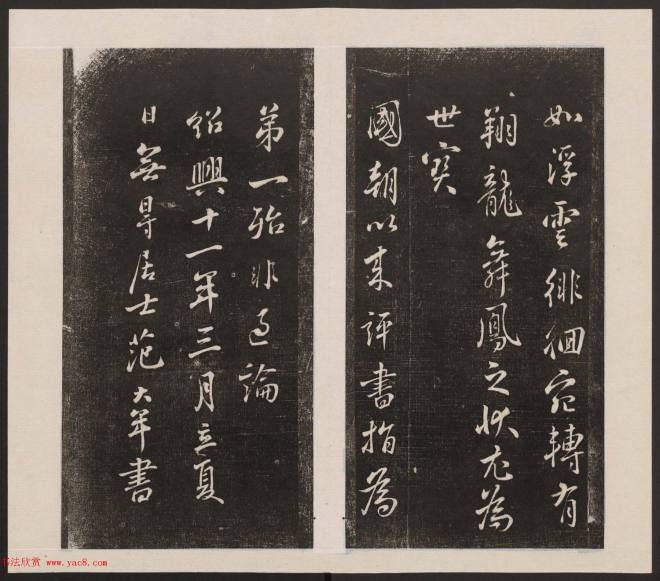 如浮雲徘徊宛轉有
翔龍舞鳳之狀尤為
世寶
國朝以來評書指為
第一殆非過論
紹興十一年三月立夏
日無㝵居士范大年書
书法欣赏 www.yac8.com